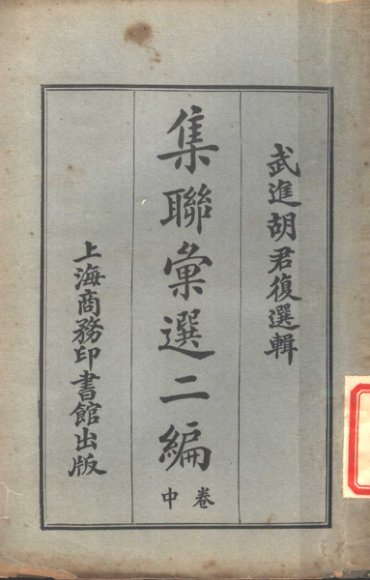 武進胡君復選輯
集聯彙選二編
卷中
上海商務印書館出版